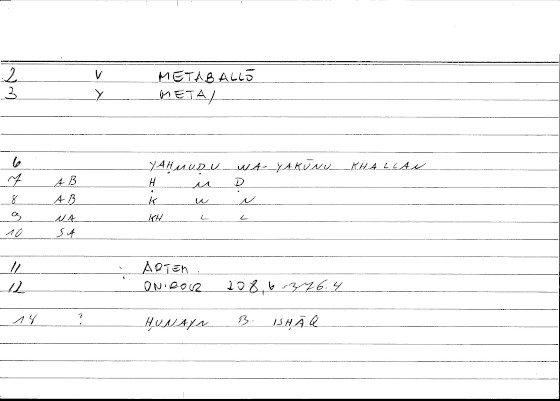 2 V METABALLŌ
3 Y META/
6 YAḤMUḌU WA-YAKŪNU KHALLAN
7 AB Ḥ M Ḍ
8 AB K W N
9 NA KH L L
10 SA
11 : ARTEM.
12 ONIROCR 208,6-376.4
14 ? ḤUNAYN B. ISḤĀQ